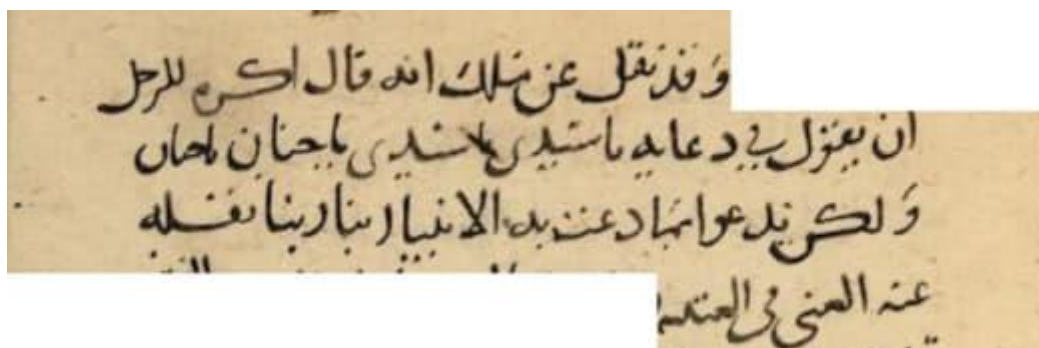 وقد نقل عن ملك انه قال اكره للرجل
ان يقول في دعايه يا سيدي يا سيدي يا حنان يا حنان
ولكن يدعو ابما دعت به الانبيا ربنا ربنا نقله
عنه العتبي في العتبيه